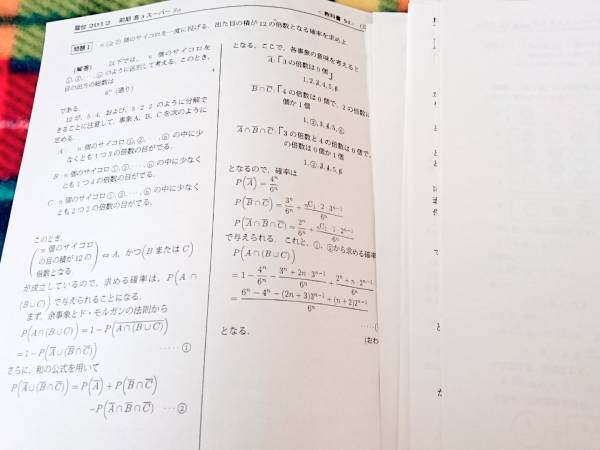 駿台 2012 前期 高3スーパー
<教科書 S1.
問題1 n (≧2) 個のサイコロを一度に投げる. 出た目の積が12の倍数となる確率を求めよ
(解答) 以下では, n個のサイコロを
①, ②, ···, ⓝ のように区別して考える. このとき,
目の出方の総数は
6^n (通り)
である.
12が, 3·4, および, 3·2·2 のように分解で
きることに注意して, 事象A, B, Cを次のように
定める.
A: n個のサイコロ①, ②, ···, ⓝ の中に少
なくとも1つ3の倍数の目がでる.
B: n個のサイコロ①, ②, ···, ⓝ の中に少なく
とも1つ4の倍数の目がでる.
C: n個のサイコロ①, ②, ···, ⓝ の中に少なく
とも2つ2の倍数の目がでる.
このとき,
(n個のサイコロの目の積が12の倍数となる) ⇔ A, かつ(BまたはC)
が成立しているので, 求める確率は, P(A∩
(B∪C))で与えられることになる.
まず, 余事象とド・モルガンの法則から
P(A∩(B∪C)) = 1−P(\overline{A∩(B∪C)})
= 1−P(\overline{A}∪(\overline{B}∩\overline{C})) ····· ①
さらに, 和の公式を用いて
P(\overline{A}∪(\overline{B}∩\overline{C})) = P(\overline{A}) + P(\overline{B}∩\overline{C})
−P(\overline{A}∩\overline{B}∩\overline{C}) ··· ②
となる. ここで, 各事象の意味を考えると
\overline{A}:「3の倍数は0個」
1, 2, 3, 4, 5, 6
\overline{B}∩\overline{C}:「4の倍数は0個で, 2の倍数に
個か1個
1, ②, 3, 4, 5, ⑥
\overline{A}∩\overline{B}∩\overline{C}:「3の倍数と4の倍数は0個で,
の倍数は0個か1個
1, ②, 3, 4, 5, 6
となるので, 確率は
P(\overline{A}) = 4^n/6^n
P(\overline{B}∩\overline{C}) = 3^n/6^n + nC1·2·3^{n−1}/6^n
P(\overline{A}∩\overline{B}∩\overline{C}) = 2^n/6^n + nC1·1·2^{n−1}/6^n
で与えられる. これと, ①, ②から求める確率
P(A∩(B∪C))
= 1 − 4^n/6^n − (3^n+2n·3^{n−1})/6^n + (2^n+n·2^{n−1})/6^n
= (6^n−4^n−(2n+3)3^{n−1}+(n+2)2^{n−1})/6^n
·····(
となる.
(おわ